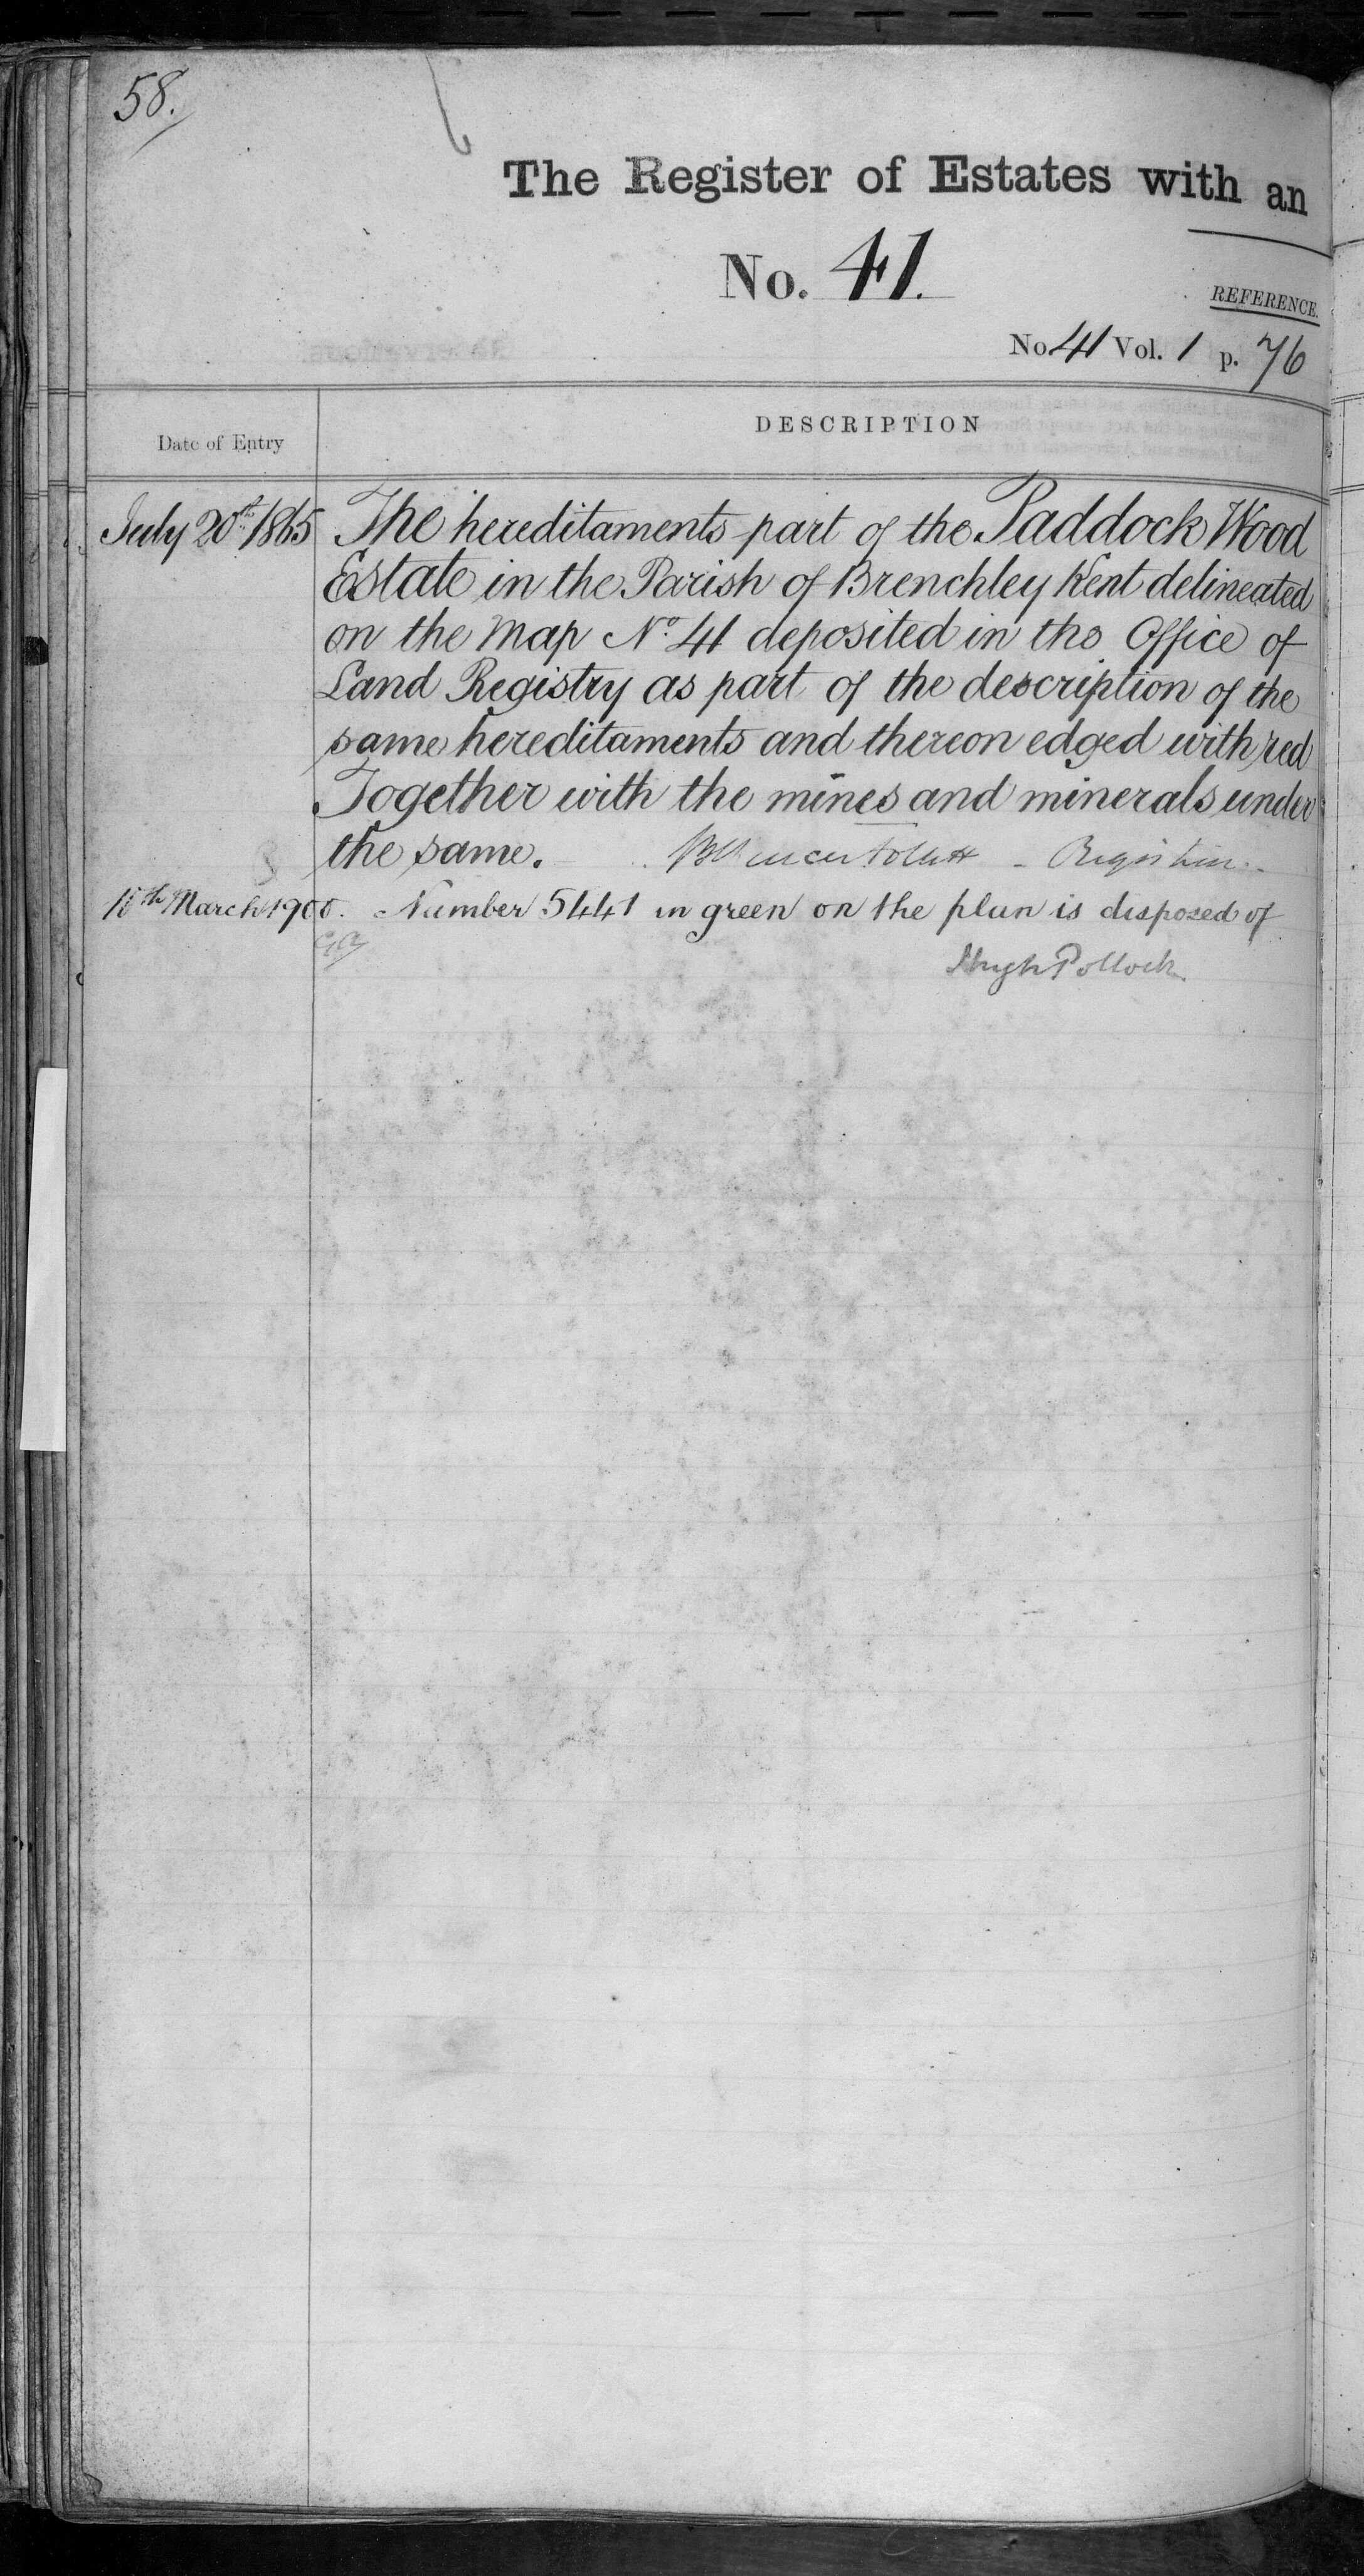 58.
The Register of Estates with an
No. 41.
REFERENCE.
No 41 Vol. 1 p. 76
Date of Entry
DESCRIPTION
July 20th 1865 The hereditaments part of the Paddock Wood
Estate in the Parish of Brenchley Kent delineated
on the Map No. 41 deposited in the Office of
Land Registry as part of the description of the
same hereditaments and thereon edged with red
Together with the mines and minerals under
the same. Follett - Registrar
March 1900. Number 5441 in green on the plan is disposed of
Hugh Pollock